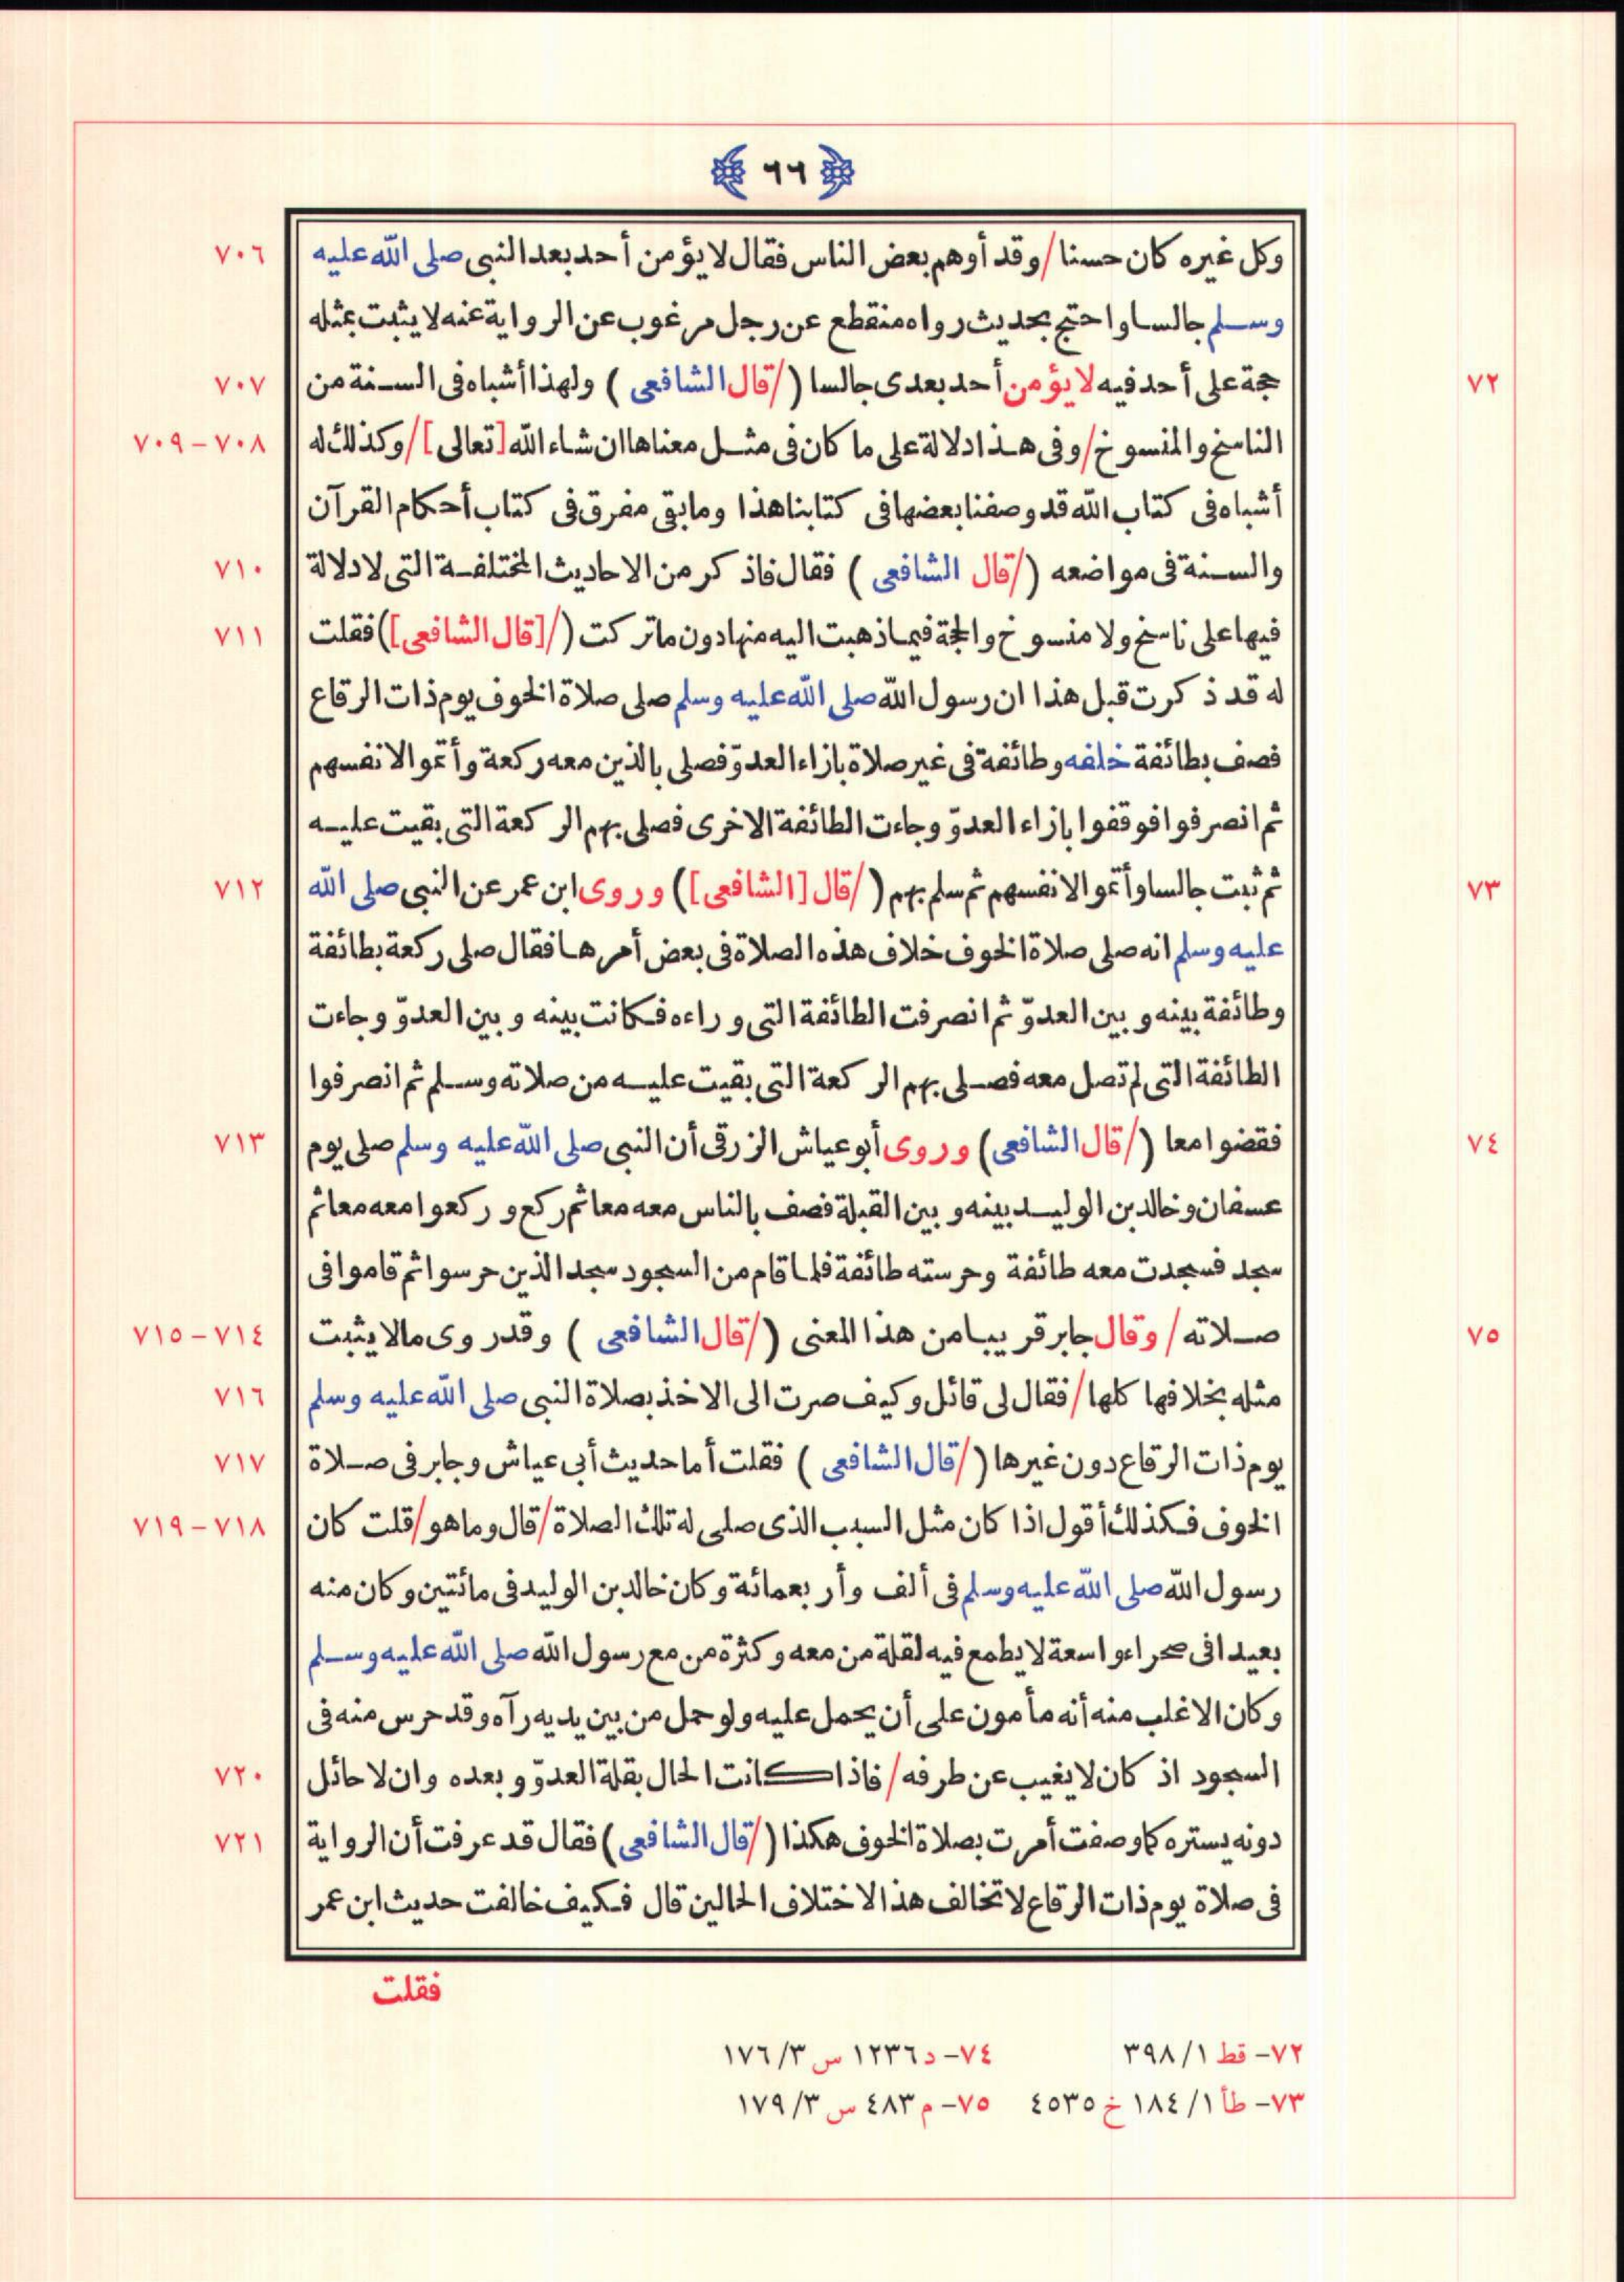 ٦٦
وكل غيره كان حسنا/وقد أوهم بعض الناس فقال لا يؤمن أحد بعد النبى صلى الله عليه ٧٠٦
وسلم جالسا واحتج بحديث رواه منقطع عن رجل مرغوب عن الرواية عنه لا يثبت بمثله
٧٢ حجة على أحد فيه لا يؤمن أحد بعدى جالسا (/قال الشافعى) ولهذا أشباه فى السنة من ٧٠٧
الناسخ والمنسوخ/وفى هذا دلالة على ما كان فى مثل معناها ان شاء الله [تعالى]/وكذلك له ٧٠٨-٧٠٩
أشباه فى كتاب الله قد وصفنا بعضها فى كتابنا هذا وما بقى مفرق فى كتاب أحكام القرآن
والسنة فى مواضعه (/قال الشافعى) فقال فاذكر من الاحاديث المختلفة التى لا دلالة ٧١٠
فيها على ناسخ ولا منسوخ والحجة فيما ذهبت اليه منها دون ما تركت (/[قال الشافعى]) فقلت ٧١١
له قد ذكرت قبل هذا ان رسول الله صلى الله عليه وسلم صلى صلاة الخوف يوم ذات الرقاع
فصف بطائفة خلفه وطائفة فى غير صلاة بازاء العدوّ فصلى بالذين معه ركعة وأتموا لانفسهم
ثم انصرفوا فوقفوا بازاء العدوّ وجاءت الطائفة الاخرى فصلى بهم الركعة التى بقيت عليه
٧٣ ثم ثبت جالسا وأتموا لانفسهم ثم سلم بهم (/قال [الشافعى]) وروى ابن عمر عن النبى صلى الله ٧١٢
عليه وسلم انه صلى صلاة الخوف خلاف هذه الصلاة فى بعض أمرها فقال صلى ركعة بطائفة
وطائفة بينه وبين العدوّ ثم انصرفت الطائفة التى وراءه فكانت بينه وبين العدوّ وجاءت
الطائفة التى لم تصل معه فصلى بهم الركعة التى بقيت عليه من صلاته وسلم ثم انصرفوا
٧٤ فقضوا معا (/قال الشافعى) وروى أبو عياش الزرقى أن النبى صلى الله عليه وسلم صلى يوم ٧١٣
عسفان وخالد بن الوليد بينه وبين القبلة فصف بالناس معه معا ثم ركع وركعوا معه معا ثم
سجد فسجدت معه طائفة وحرسته طائفة فلما قام من السجود سجد الذين حرسوا ثم قاموا فى
٧٥ صلاته/وقال جابر قريبا من هذا المعنى (/قال الشافعى) وقد روى مالا يثبت ٧١٤-٧١٥
مثله بخلافها كلها/فقال لى قائل وكيف صرت الى الاخذ بصلاة النبى صلى الله عليه وسلم ٧١٦
يوم ذات الرقاع دون غيرها (/قال الشافعى) فقلت أما حديث أبى عياش وجابر فى صلاة ٧١٧
الخوف فكذلك أقول اذا كان مثل السبب الذى صلى له تلك الصلاة/قال وما هو/قلت كان ٧١٨-٧١٩
رسول الله صلى الله عليه وسلم فى ألف وأربعمائة وكان خالد بن الوليد فى مائتين وكان منه
بعيدا فى صحراء واسعة لا يطمع فيه لقلة من معه وكثرة من مع رسول الله صلى الله عليه وسلم
وكان الاغلب منه أنه مأمون على أن يحمل عليه ولو حمل من بين يديه رآه وقد حرس منه فى
السجود اذ كان لا يغيب عن طرفه/فاذا كانت الحال بقلة العدوّ وبعده وان لا حائل ٧٢٠
دونه يستره كما وصفت أمرت بصلاة الخوف هكذا (/قال الشافعى) فقال قد عرفت أن الرواية ٧٢١
فى صلاة يوم ذات الرقاع لا تخالف هذا لاختلاف الحالين قال فكيف خالفت حديث ابن عمر
فقلت
٧٢- قط ١/ ٣٩٨ ٧٤- د ١٢٣٦ س ٣/ ١٧٦
٧٣- طأ ١/ ١٨٤ خ ٤٥٣٥ ٧٥- م ٤٨٣ س ٣/ ١٧٩